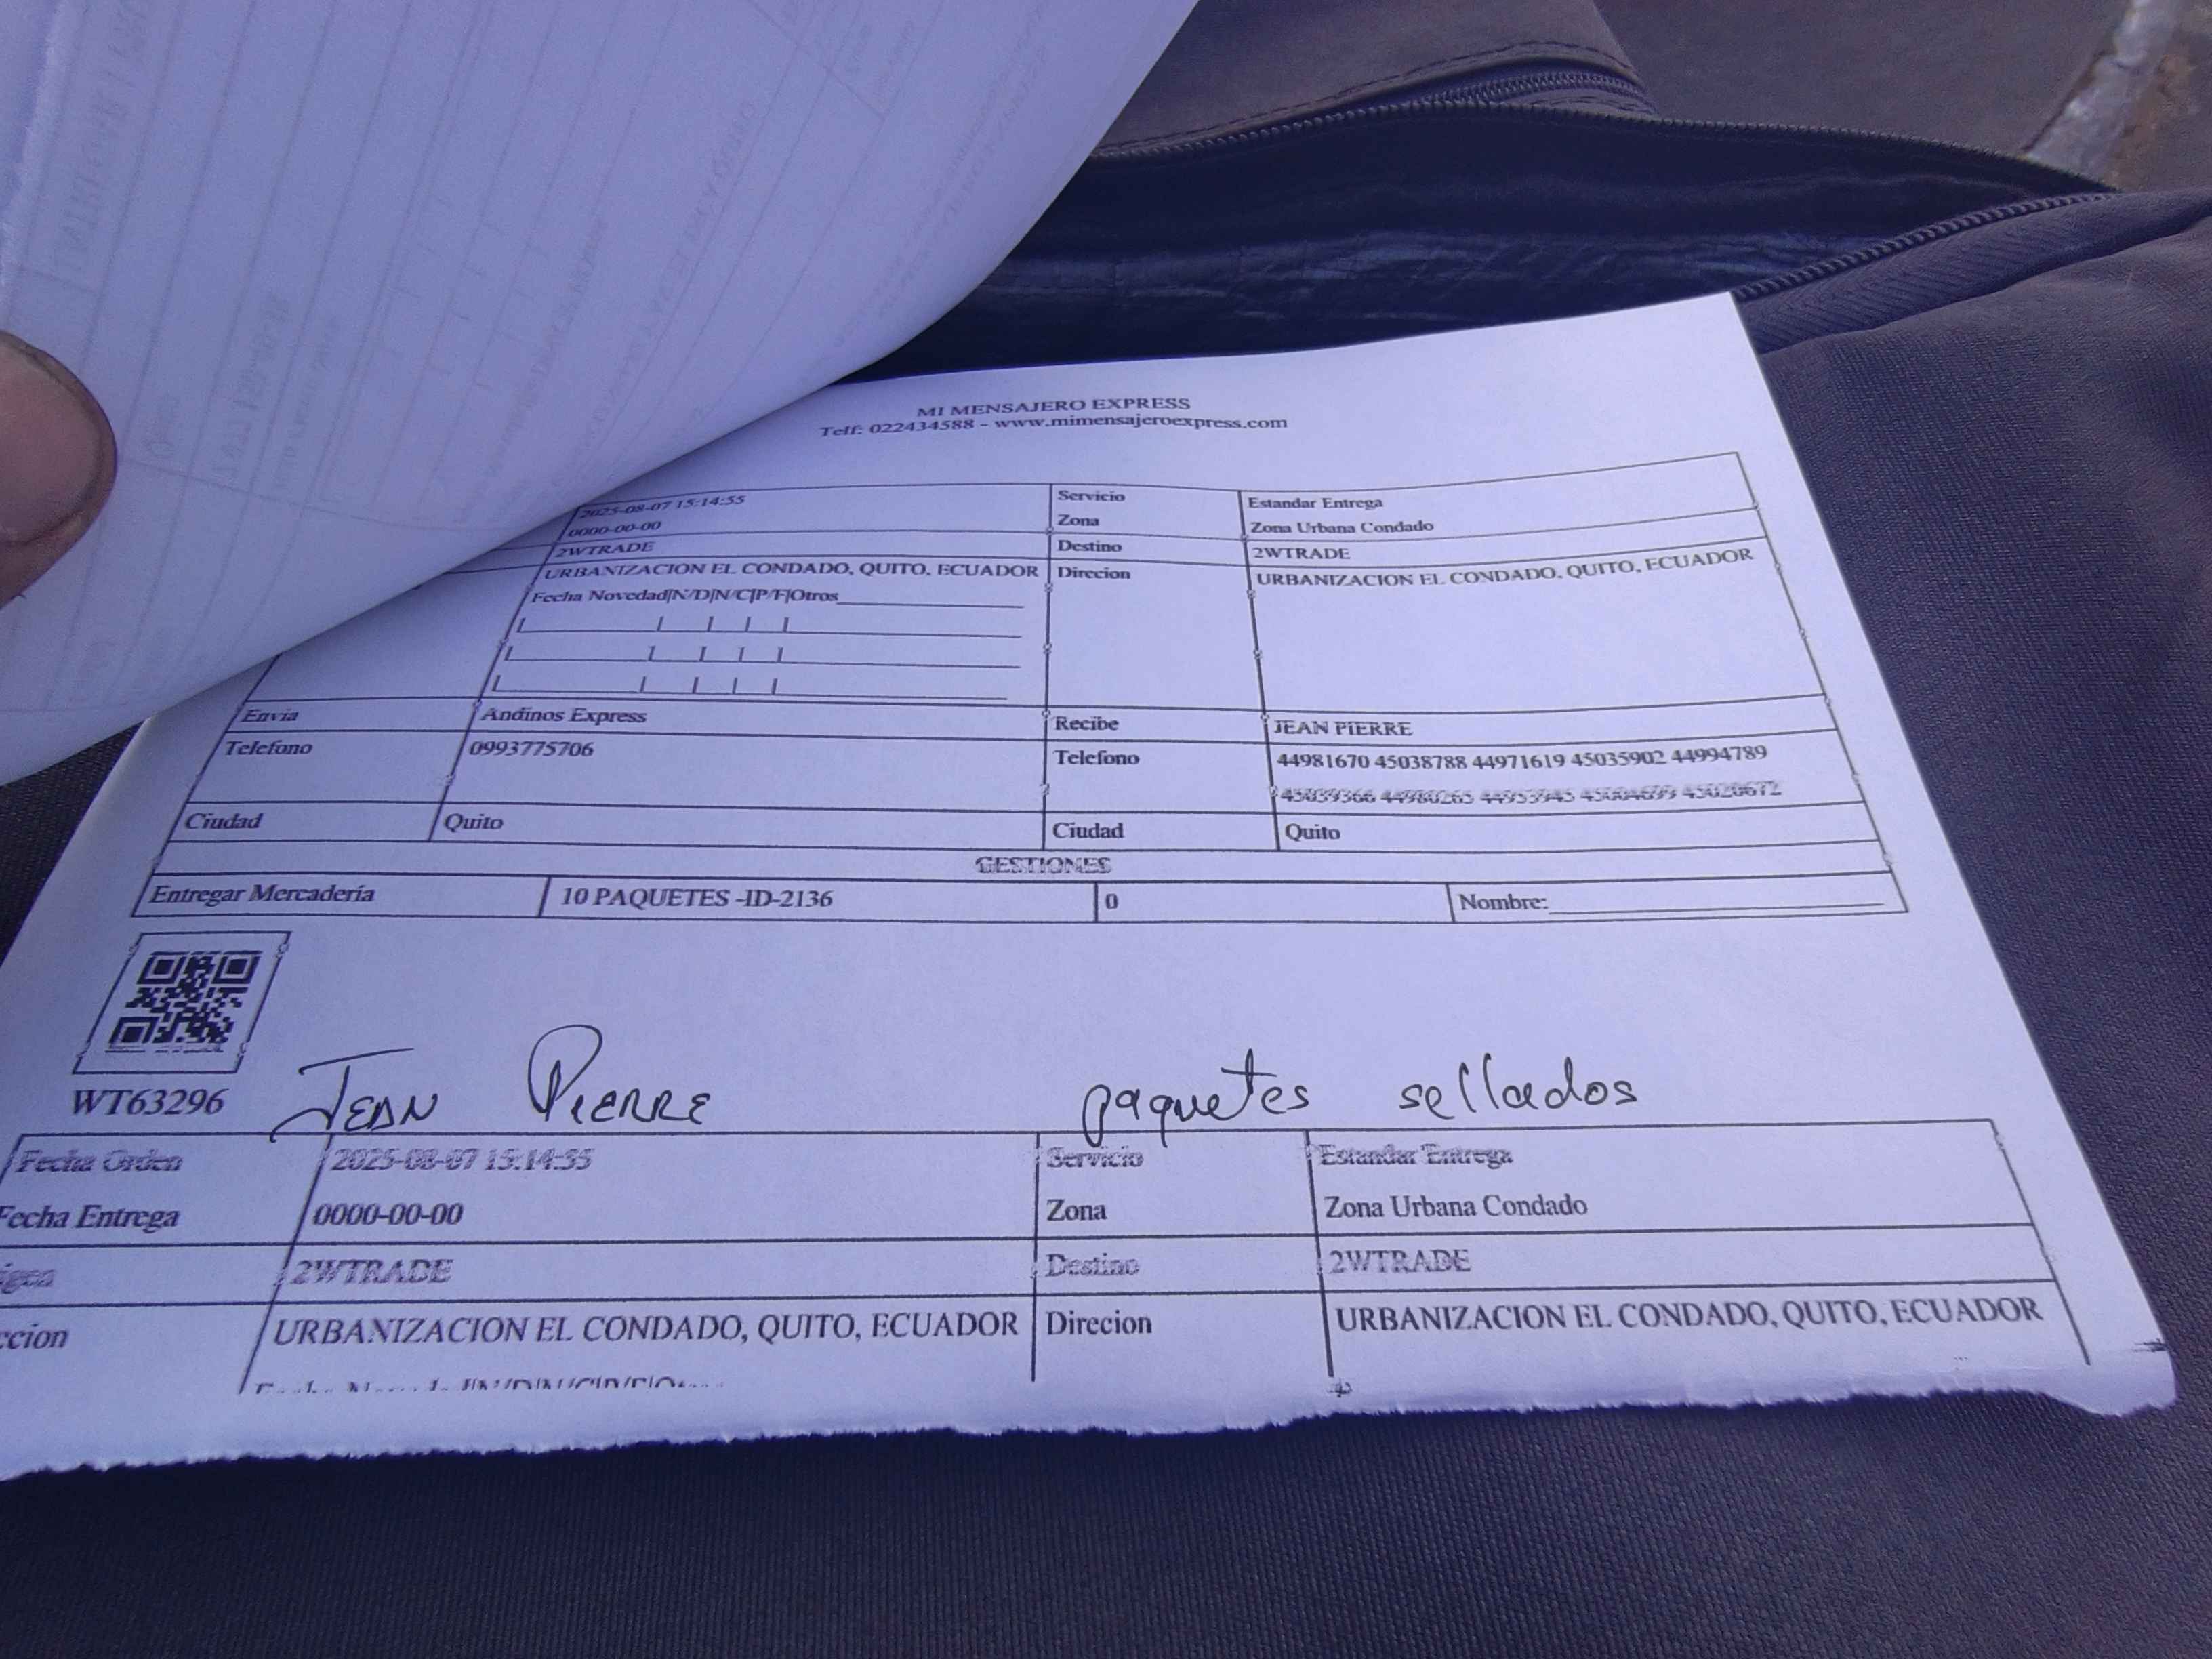 MI MENSAJERO EXPRESS
Telf: 022434588 - www.mimensajeroexpress.com
2025-08-07 15:14:55 Servicio Estandar Entrega
0000-00-00 Zona Zona Urbana Condado
2WTRADE Destino 2WTRADE
URBANIZACION EL CONDADO, QUITO, ECUADOR Direcion URBANIZACION EL CONDADO, QUITO, ECUADOR
Fecha Novedad|N/D|N/C|P/F|Otros
Envia Andinos Express Recibe JEAN PIERRE
Telefono 0993775706 Telefono 44981670 45038788 44971619 45035902 44994789
45039366 44980265 44953945 45004699 45020672
Ciudad Quito Ciudad Quito
GESTIONES
Entregar Mercaderia 10 PAQUETES -ID-2136 0 Nombre:
WT63296 JEAN PIERRE paquetes sellados
Fecha Orden 2025-08-07 15:14:55 Servicio Estandar Entrega
Fecha Entrega 0000-00-00 Zona Zona Urbana Condado
igen 2WTRADE Destino 2WTRADE
ccion URBANIZACION EL CONDADO, QUITO, ECUADOR Direcion URBANIZACION EL CONDADO, QUITO, ECUADOR